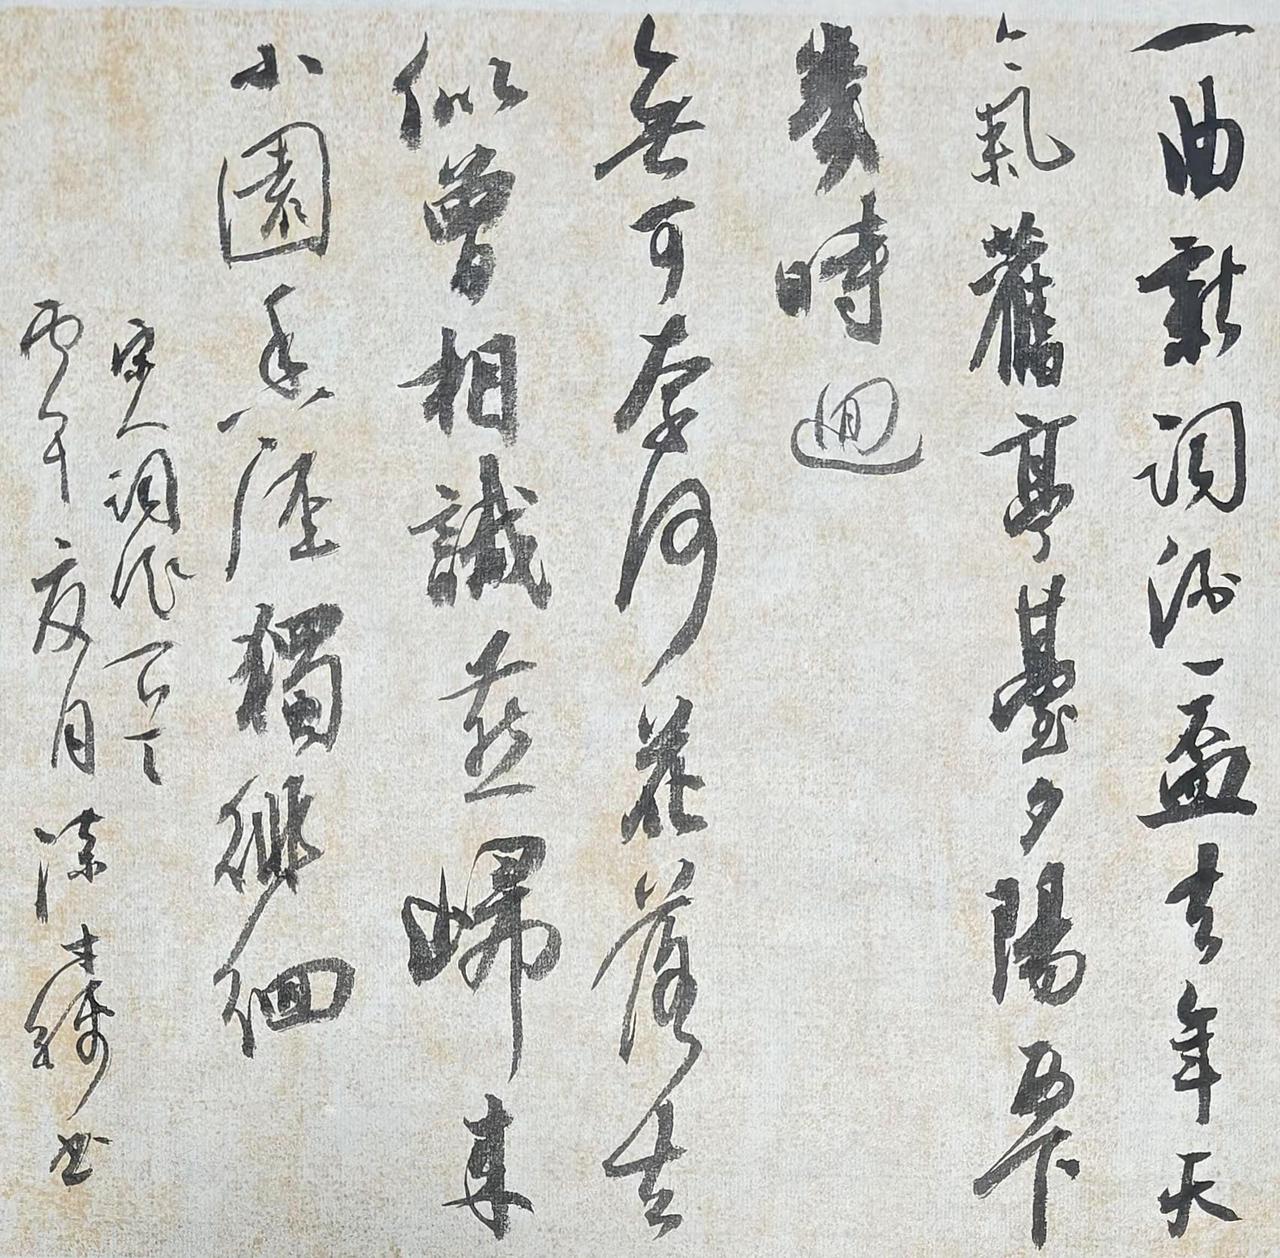 一曲新詞酒一盃去年天
氣舊亭臺夕陽西下
幾時迴
無可奈何花落去
似曾相識燕歸來
小園香徑獨徘徊
宋人詞作
丙午夏月陳書